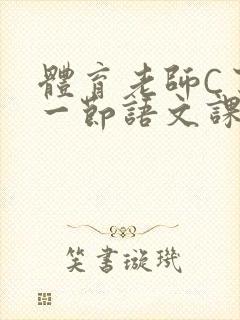 體育老師C
一節語文課
笑書璇璣